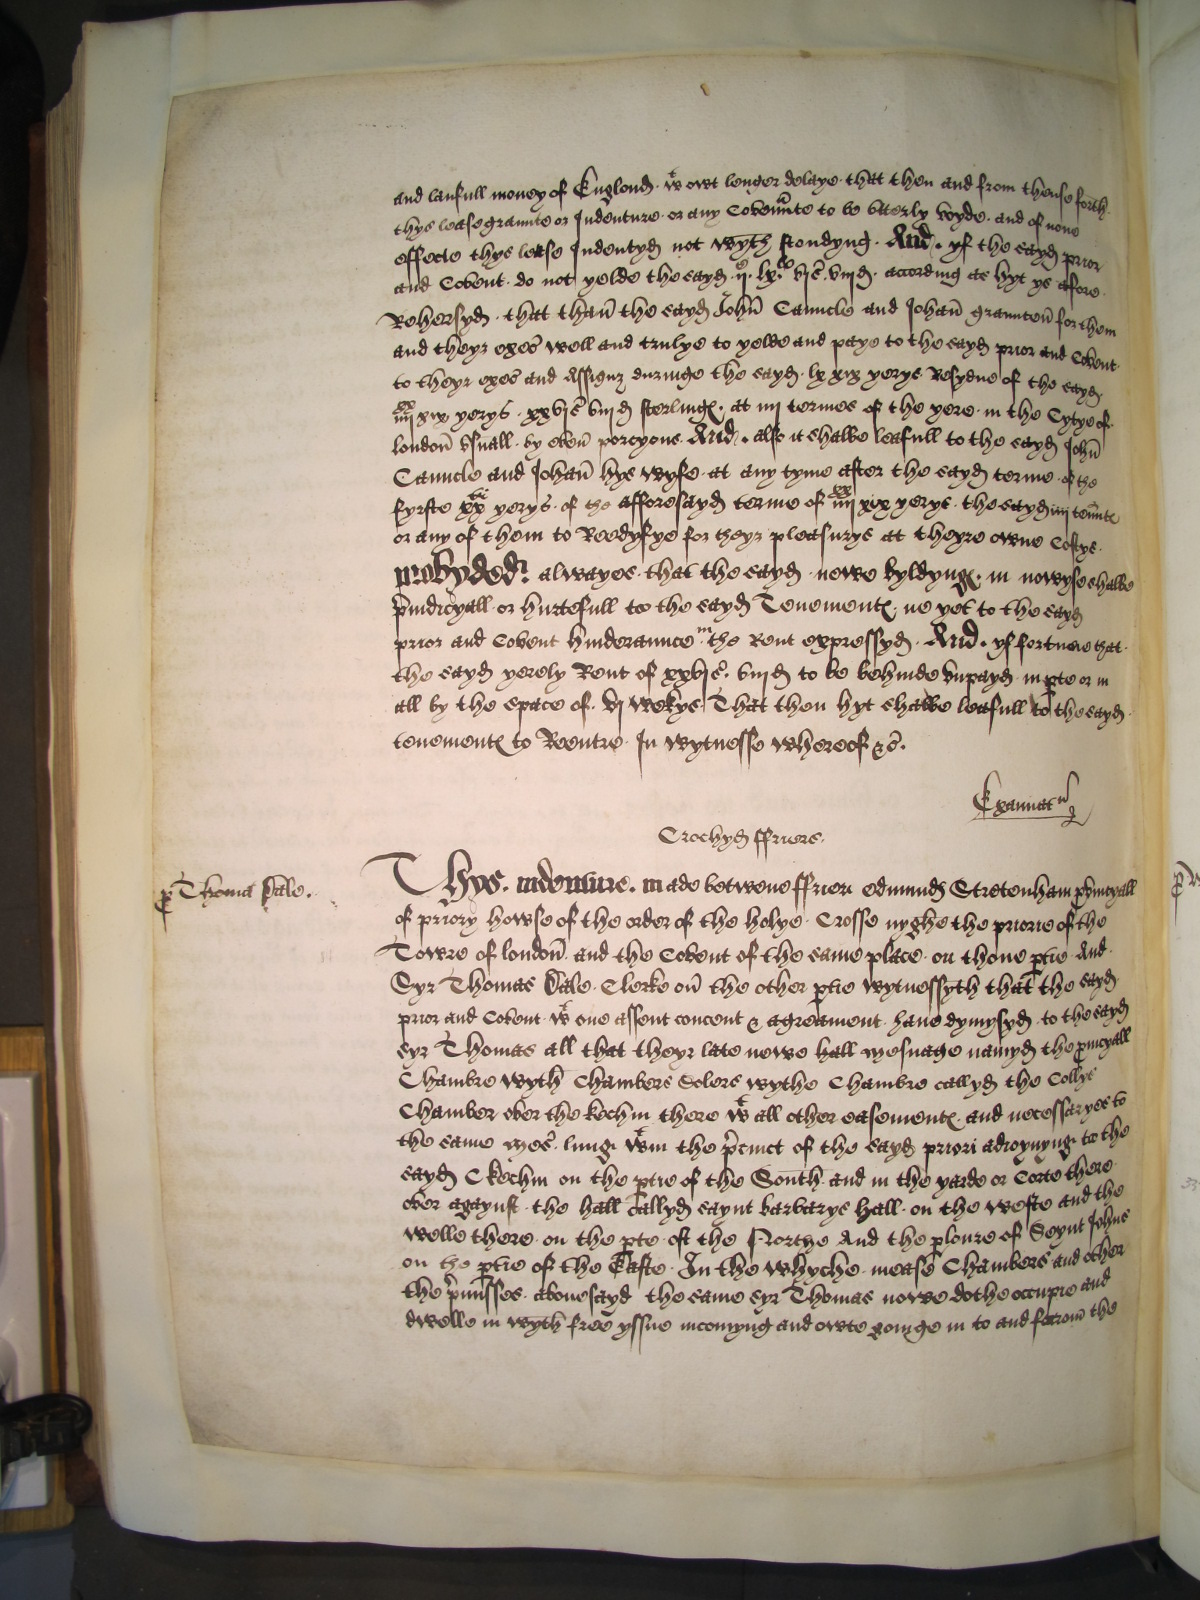 and laufull money of Englond. wt owt lenger delaye. that then and from thense forth.
thys lease graunte or Indenture. or any Covenūte to be vtterly voyde. and of none
effecte thys lease Indentyd not wyth stondyng. And. yf the sayd prior
and Covent. do not yelde the sayd. ij. lxli. vjs. viijd. according as hyt ys afore.
Rehersyd. that thañ the sayd Johñ Caucle and Johañ grauntoñ for them
and theyr exes well and trulye to yelde and paye to the sayd prior and Covent.
to theyr exes and Assignz duringe the sayd. lxxix yerys. Resydue of the sayd
iiijxx xix yerys. xxvjs viijd sterling. at iiij termes of the yere. in the Cytye of
londoñ vsuall. by eveñ porcyons. And. also it shalbe leafull to the sayd Johñ
Caucle and Johañ hys wyfe. at any tyme after the sayd terme of the
fyrste xxti yerys. of the afforesayd terme of iiijxx xix yerys. the sayd iiij teñnte
or any of them to Reedyfye for theyr pleasurys at theyre owne Costys.
provyded. alwayes. that the sayd. newe byldyng. in nowyse shalbe
p̄iudicyall. or hurtefull to the sayd Tenement. ne yet to the sayd
prior and Covent hinderaunce in the Rent expressyd. And. yf fortune that.
the sayd yerely Rent of xxvjs. viijd to be behinde vnpayd. in pte or in
all by the space of. vj wekys. That then hyt shalbe leafull to the sayd.
tenement to Reentre. In wytnesse whereof &c.
Examinatr
Crochyd ffriers.
p Thoma Dale.
Thys. indenture. made betwene ffrier edmund Stretenham p̄incyall
of priory howse of the order of the holye. Crosse nyghe the priorie of the
Towre of londoñ. and the Covent of the same place. on thone ptie. And.
Syr Thomas Dale. Clerke oñ the other ptie wytnessyth that the sayd
prior and Covent. wt one assent concent & agreament. haue dymysyd. to the sayd
syr Thomas all that theyr late newe hall mesuage namyd the p̄incyall
Chambre wyth Chambers Selers wythe Chambre callyd the Collys
Chamber over the kechin there wt all other easement. and necessaryes to
the same mes. liing. wtin the p̄cinct of the sayd priori adioynyng. to the
sayd Ckechin on the ptie of the Southe. and in the yarde or Corte there.
over agaynst. the hall callyd saynt barbarys hall. on the weste and the
welle there. on the pte. of the Northe And the ploure of Seynt Johns
on the ptie of the Easte. In the whyche. mease Chambers and other
the p̄misses. abouesayd the same syr Thomas nowe dothe occupie and
dwelle in wyth free yssue incomyng and owte goinge in to and from the